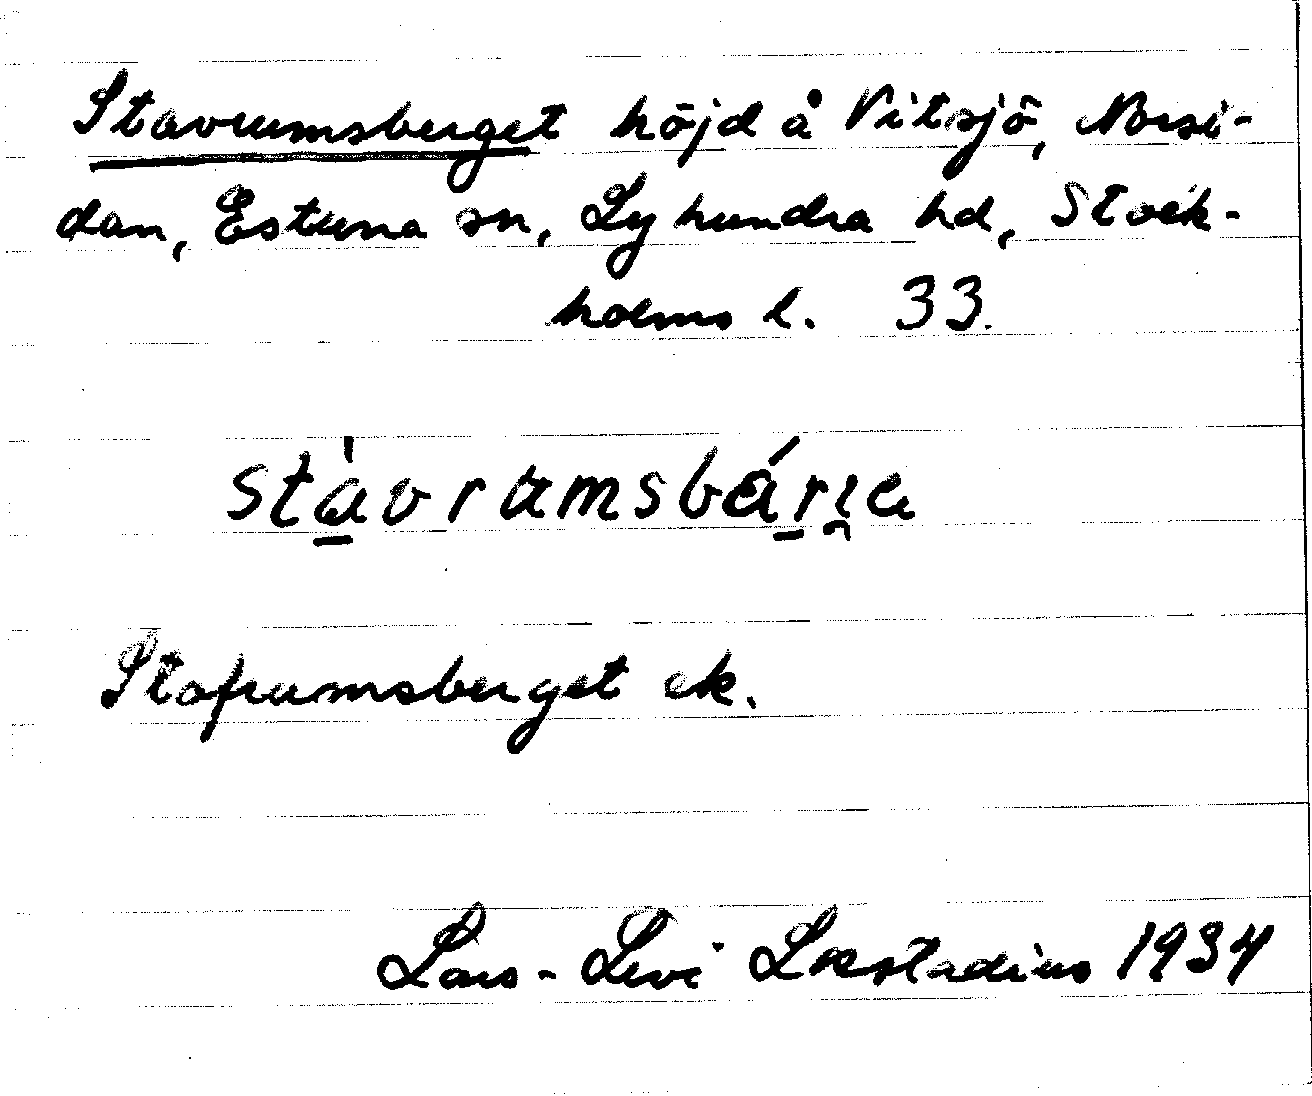 Stavrumsberget höjd å Vitsjö, Norsi-
dan, Estuna sn, Lyhundra hd, Stock-
holms l. 33.
stàvrumsbárɪa
Stafrumsberget ek.
Lars-Levi Læstadius 1934